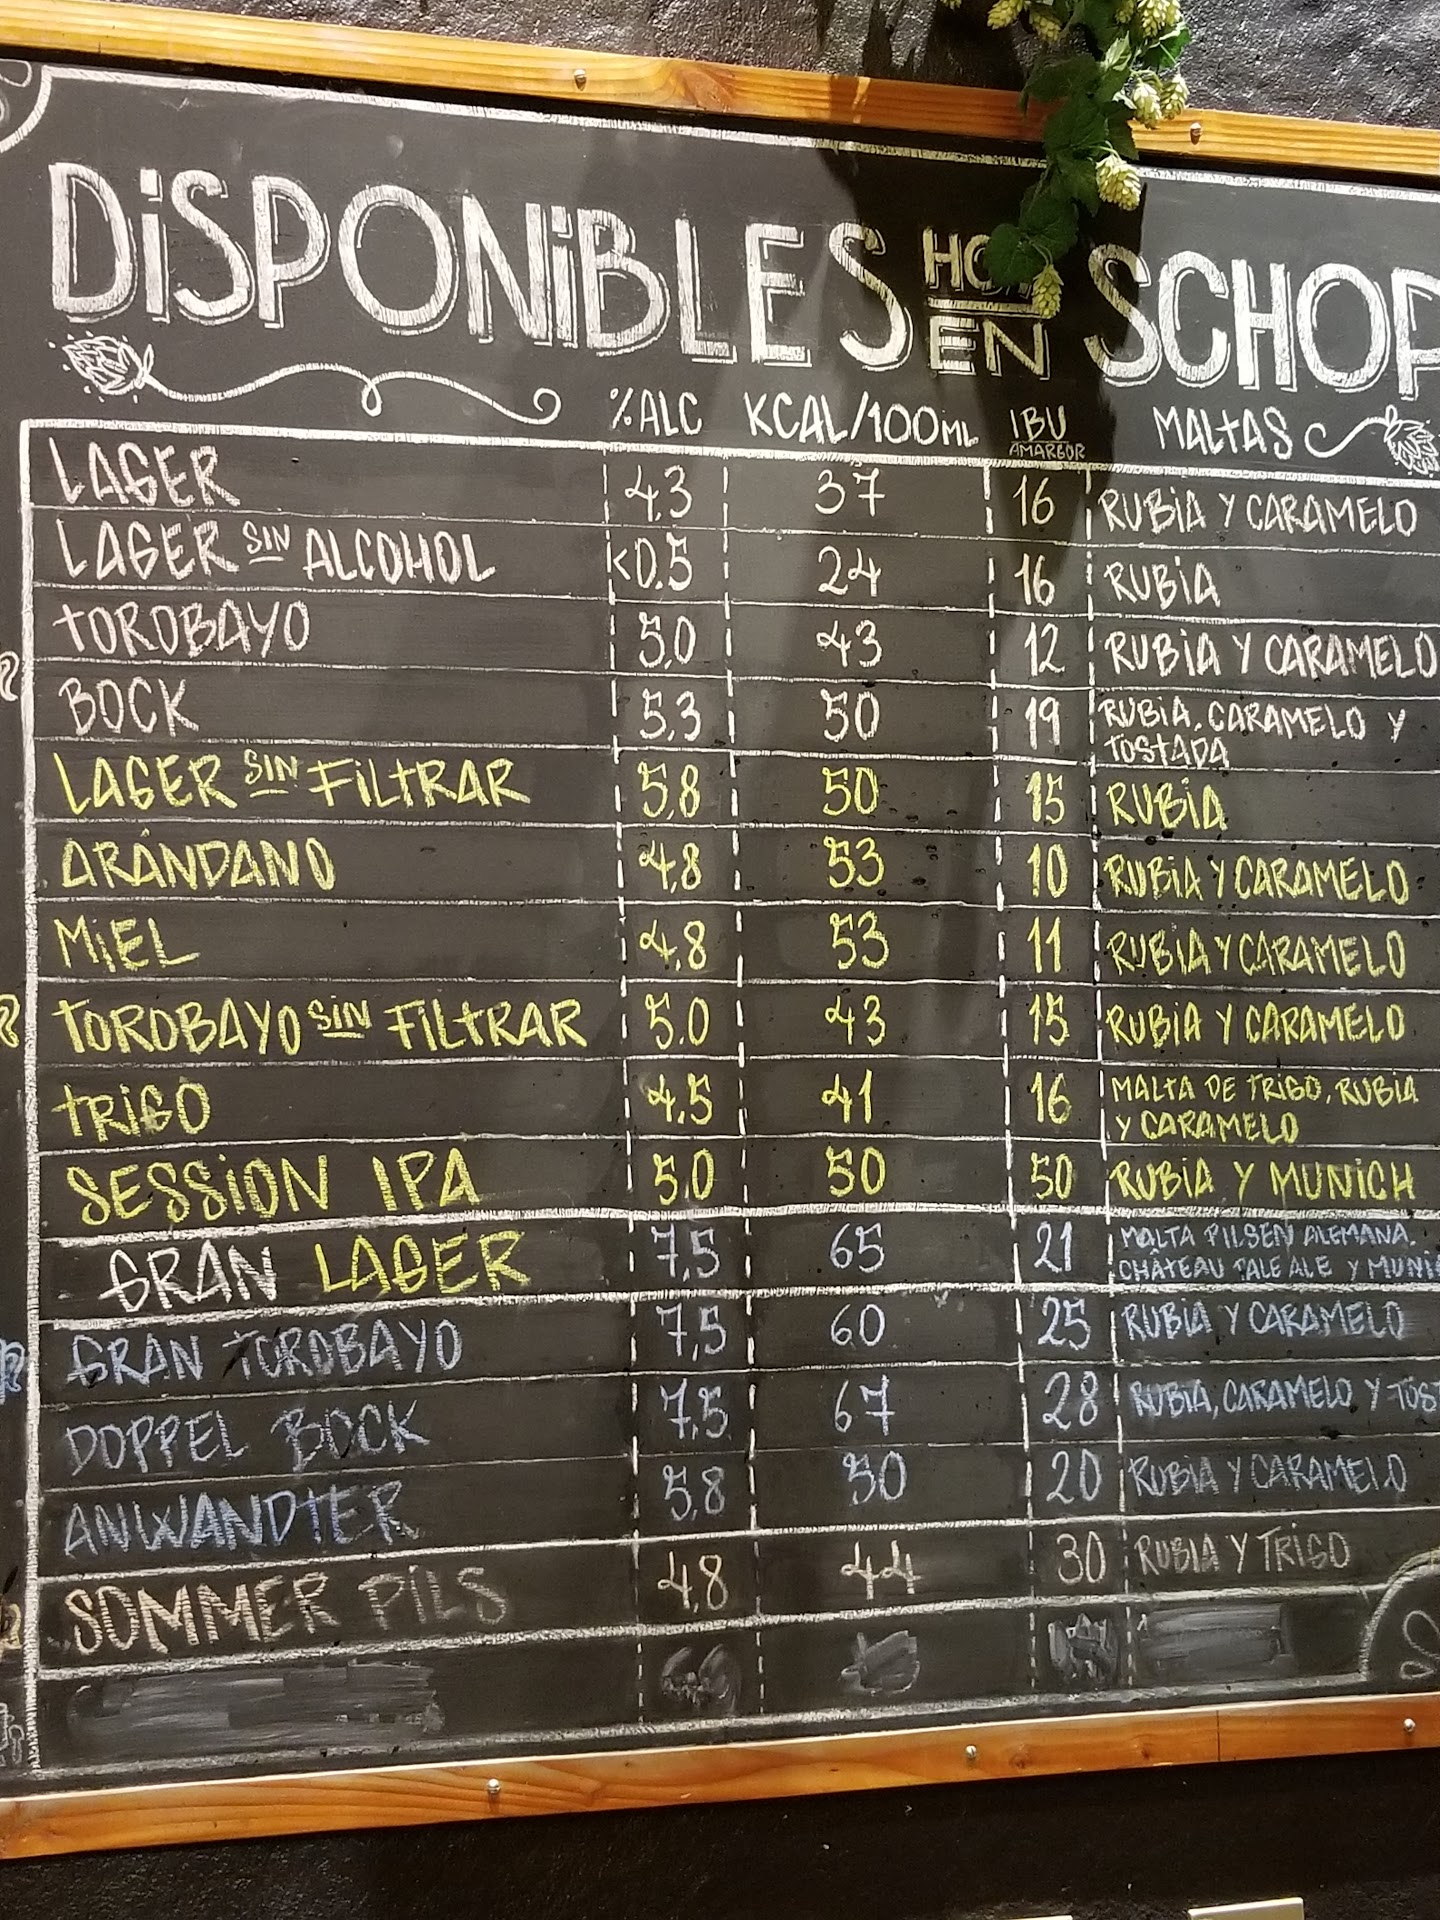 DISPONIBLES HOY EN SCHOP
%ALC KCAL/100ML IBU AMARGOR MALTAS
LAGER 4,3 37 16 RUBIA Y CARAMELO
LAGER SIN ALCOHOL <0.5 24 16 RUBIA
TOROBAYO 5,0 43 12 RUBIA Y CARAMELO
BOCK 5,3 50 19 RUBIA, CARAMELO Y
TOSTADA
LAGER SIN FILTRAR 5,8 50 15 RUBIA
ARÁNDANO 4,8 53 10 RUBIA Y CARAMELO
MIEL 4,8 53 11 RUBIA Y CARAMELO
TOROBAYO SIN FILTRAR 5.0 43 15 RUBIA Y CARAMELO
TRIGO 4,5 41 16 MALTA DE TRIGO, RUBIA
Y CARAMELO
SESSION IPA 5,0 50 50 RUBIA Y MUNICH
GRAN LAGER 7,5 65 21 MALTA PILSEN ALEMANA,
CHÂTEAU PALE ALE Y MUNI
GRAN TOROBAYO 7,5 60 25 RUBIA Y CARAMELO
DOPPEL BOCK 7,5 67 28 RUBIA, CARAMELO Y TOS
ANWANDTER 5,8 50 20 RUBIA Y CARAMELO
SOMMER PILS 4,8 44 30 RUBIA Y TRIGO